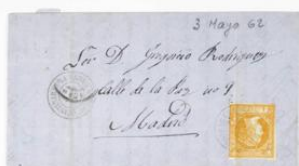 3 Mayo 62
Sor D. Gregorio Rodriguez
Calle de la Paz no 9
Madrid